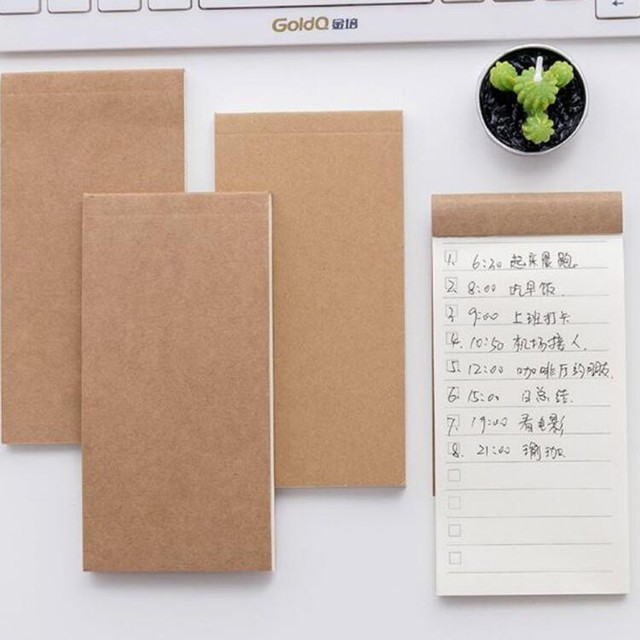 GoldQ金培
1. 6:30 起床晨跑.
2. 8:00 吃早饭.
3. 9:00 上班打卡
4. 10:50 机场接人.
5. 12:00 咖啡厅约朋友.
6. 15:00 日总结.
7. 19:00 看电影
8. 21:00 瑜珈.